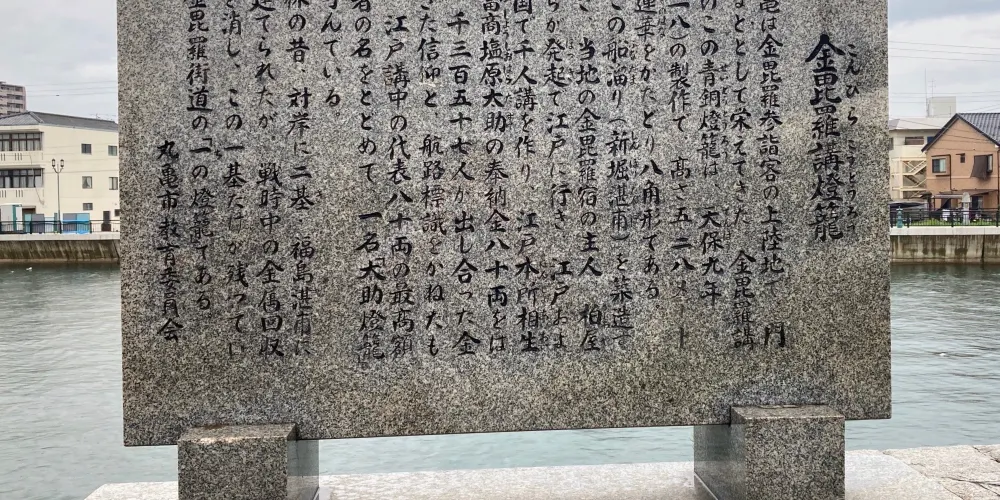 金毘羅講燈籠
こんぴら こうとうろう
亀は金毘羅参詣客の上陸地で 門
るととして栄えてきた 金毘羅講
のこの青銅燈籠は 天保九年
一八)の製作で 高さ五・二八メート
蓮華をかたどり八角形である
この船溜り(新堀湛甫)を築造で
当地の金毘羅宿の主人 柏屋
らが発起て江戸に行き 江戸およ
国で千人講を作り、江戸本所相生
富高塩原大助の奉納金八十両をは
千三百五十七人が出し合った金
きた信仰と、航路標識をかねたも
江戸講中の代表八十両の最高額
者の名をとどめて 一名「大助燈籠
でんでいる。
保の昔、対岸に二基 福島湛甫に
建てられたが 戦時中の金属回収
を消し、この一基だけが残ってい
金毘羅街道の「一の燈籠」である
丸亀市教育委員会